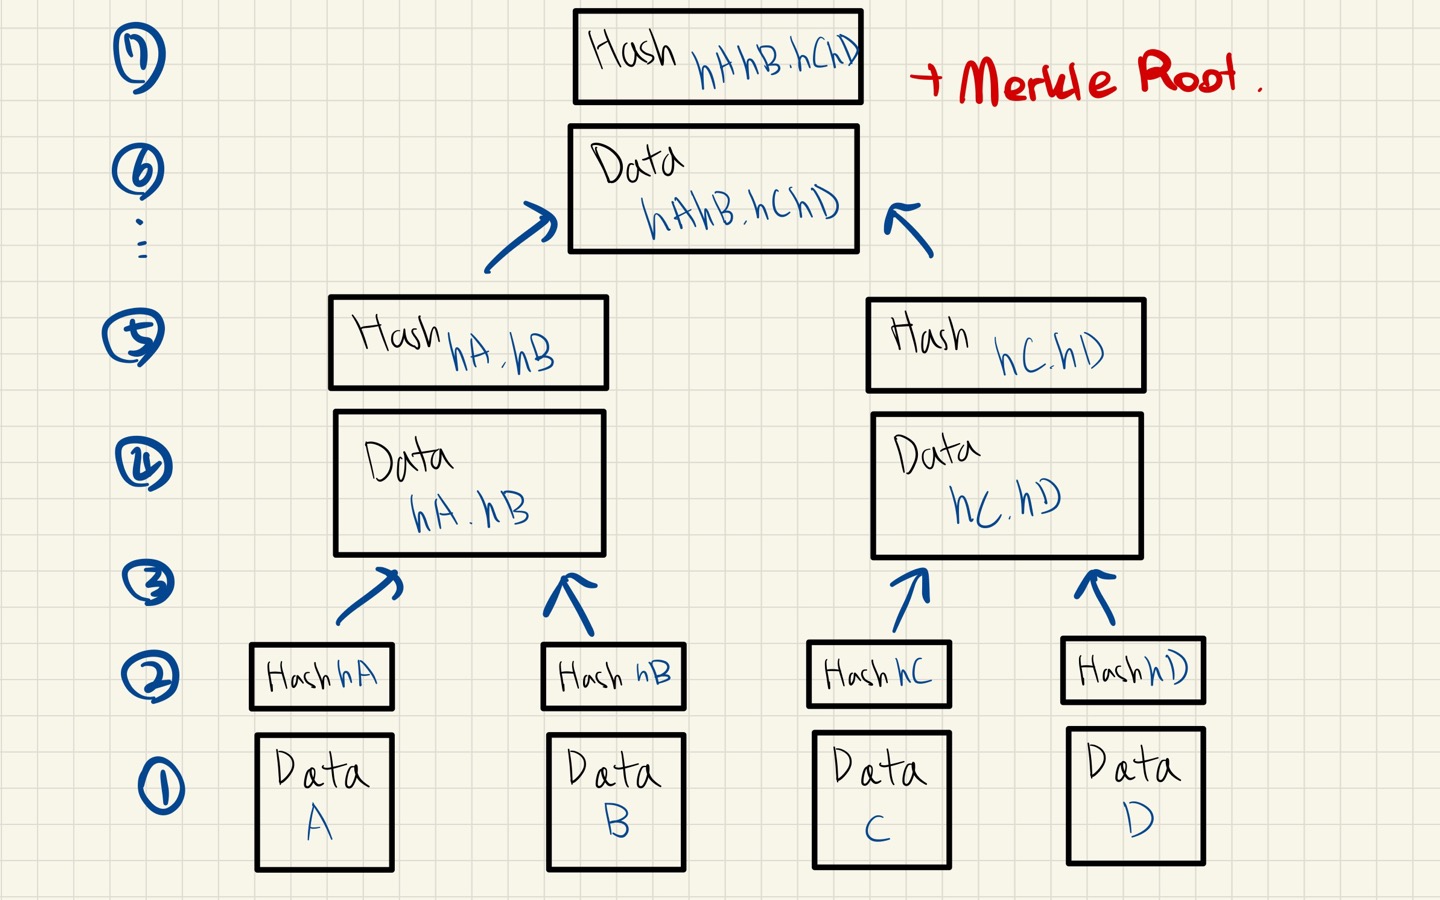 7
Hash hAhB.hChD
+ Merkle Root.
6
Data
hAhB.hChD
5
Hash hA.hB
Hash hC.hD
4
Data
hA.hB
Data
hC.hD
3
2
Hash hA
Hash hB
Hash hC
Hash hD
1
Data
A
Data
B
Data
C
Data
D